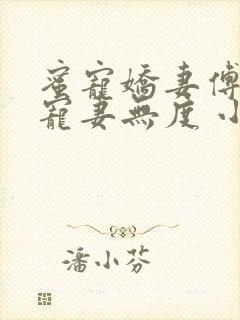 蜜寵嬌妻傅
寵妻無度 小
潘小芬